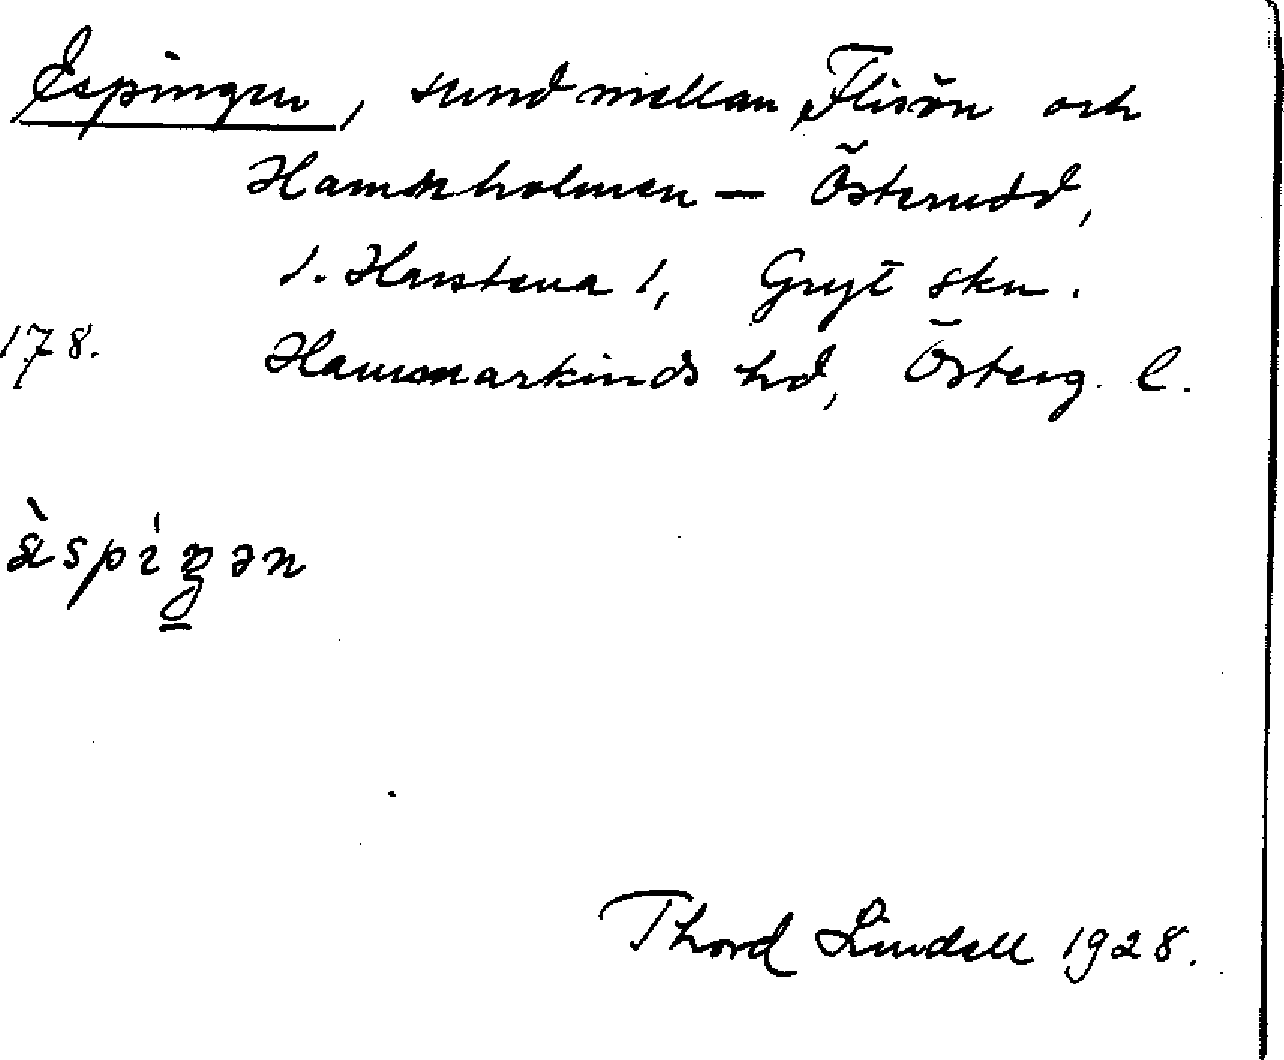 Espingen, sund mellan Flisön och
Hamnholmen – Österudd,
1. Harstena 1, Gryt skn.
178. Hammarkinds hd, Österg. l.
Thord Lindell 1928.